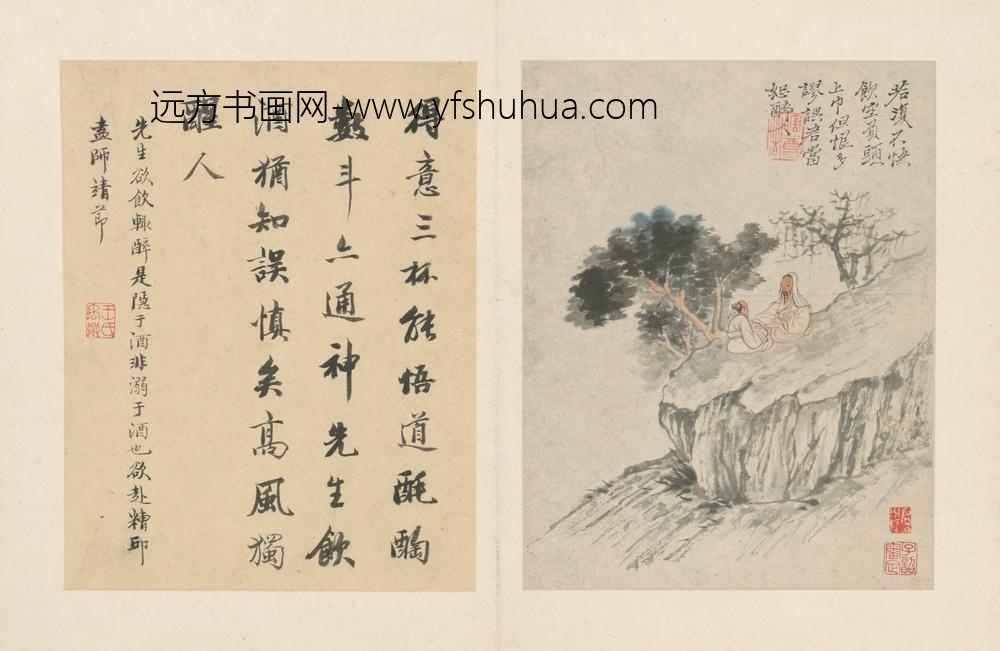 若復不快
飲空負頭
上巾但恨多
謬誤君當
恕醉人
得意三杯能悟道酕醄
數斗亦通神先生飲
酒猶知誤慎矣高風獨
醒人
先生欲飲輒醉是隱于酒非溺于酒也欲赴糟邱
盍師靖節
王氏禹卿
远方书画网-www.yfshuhua.com